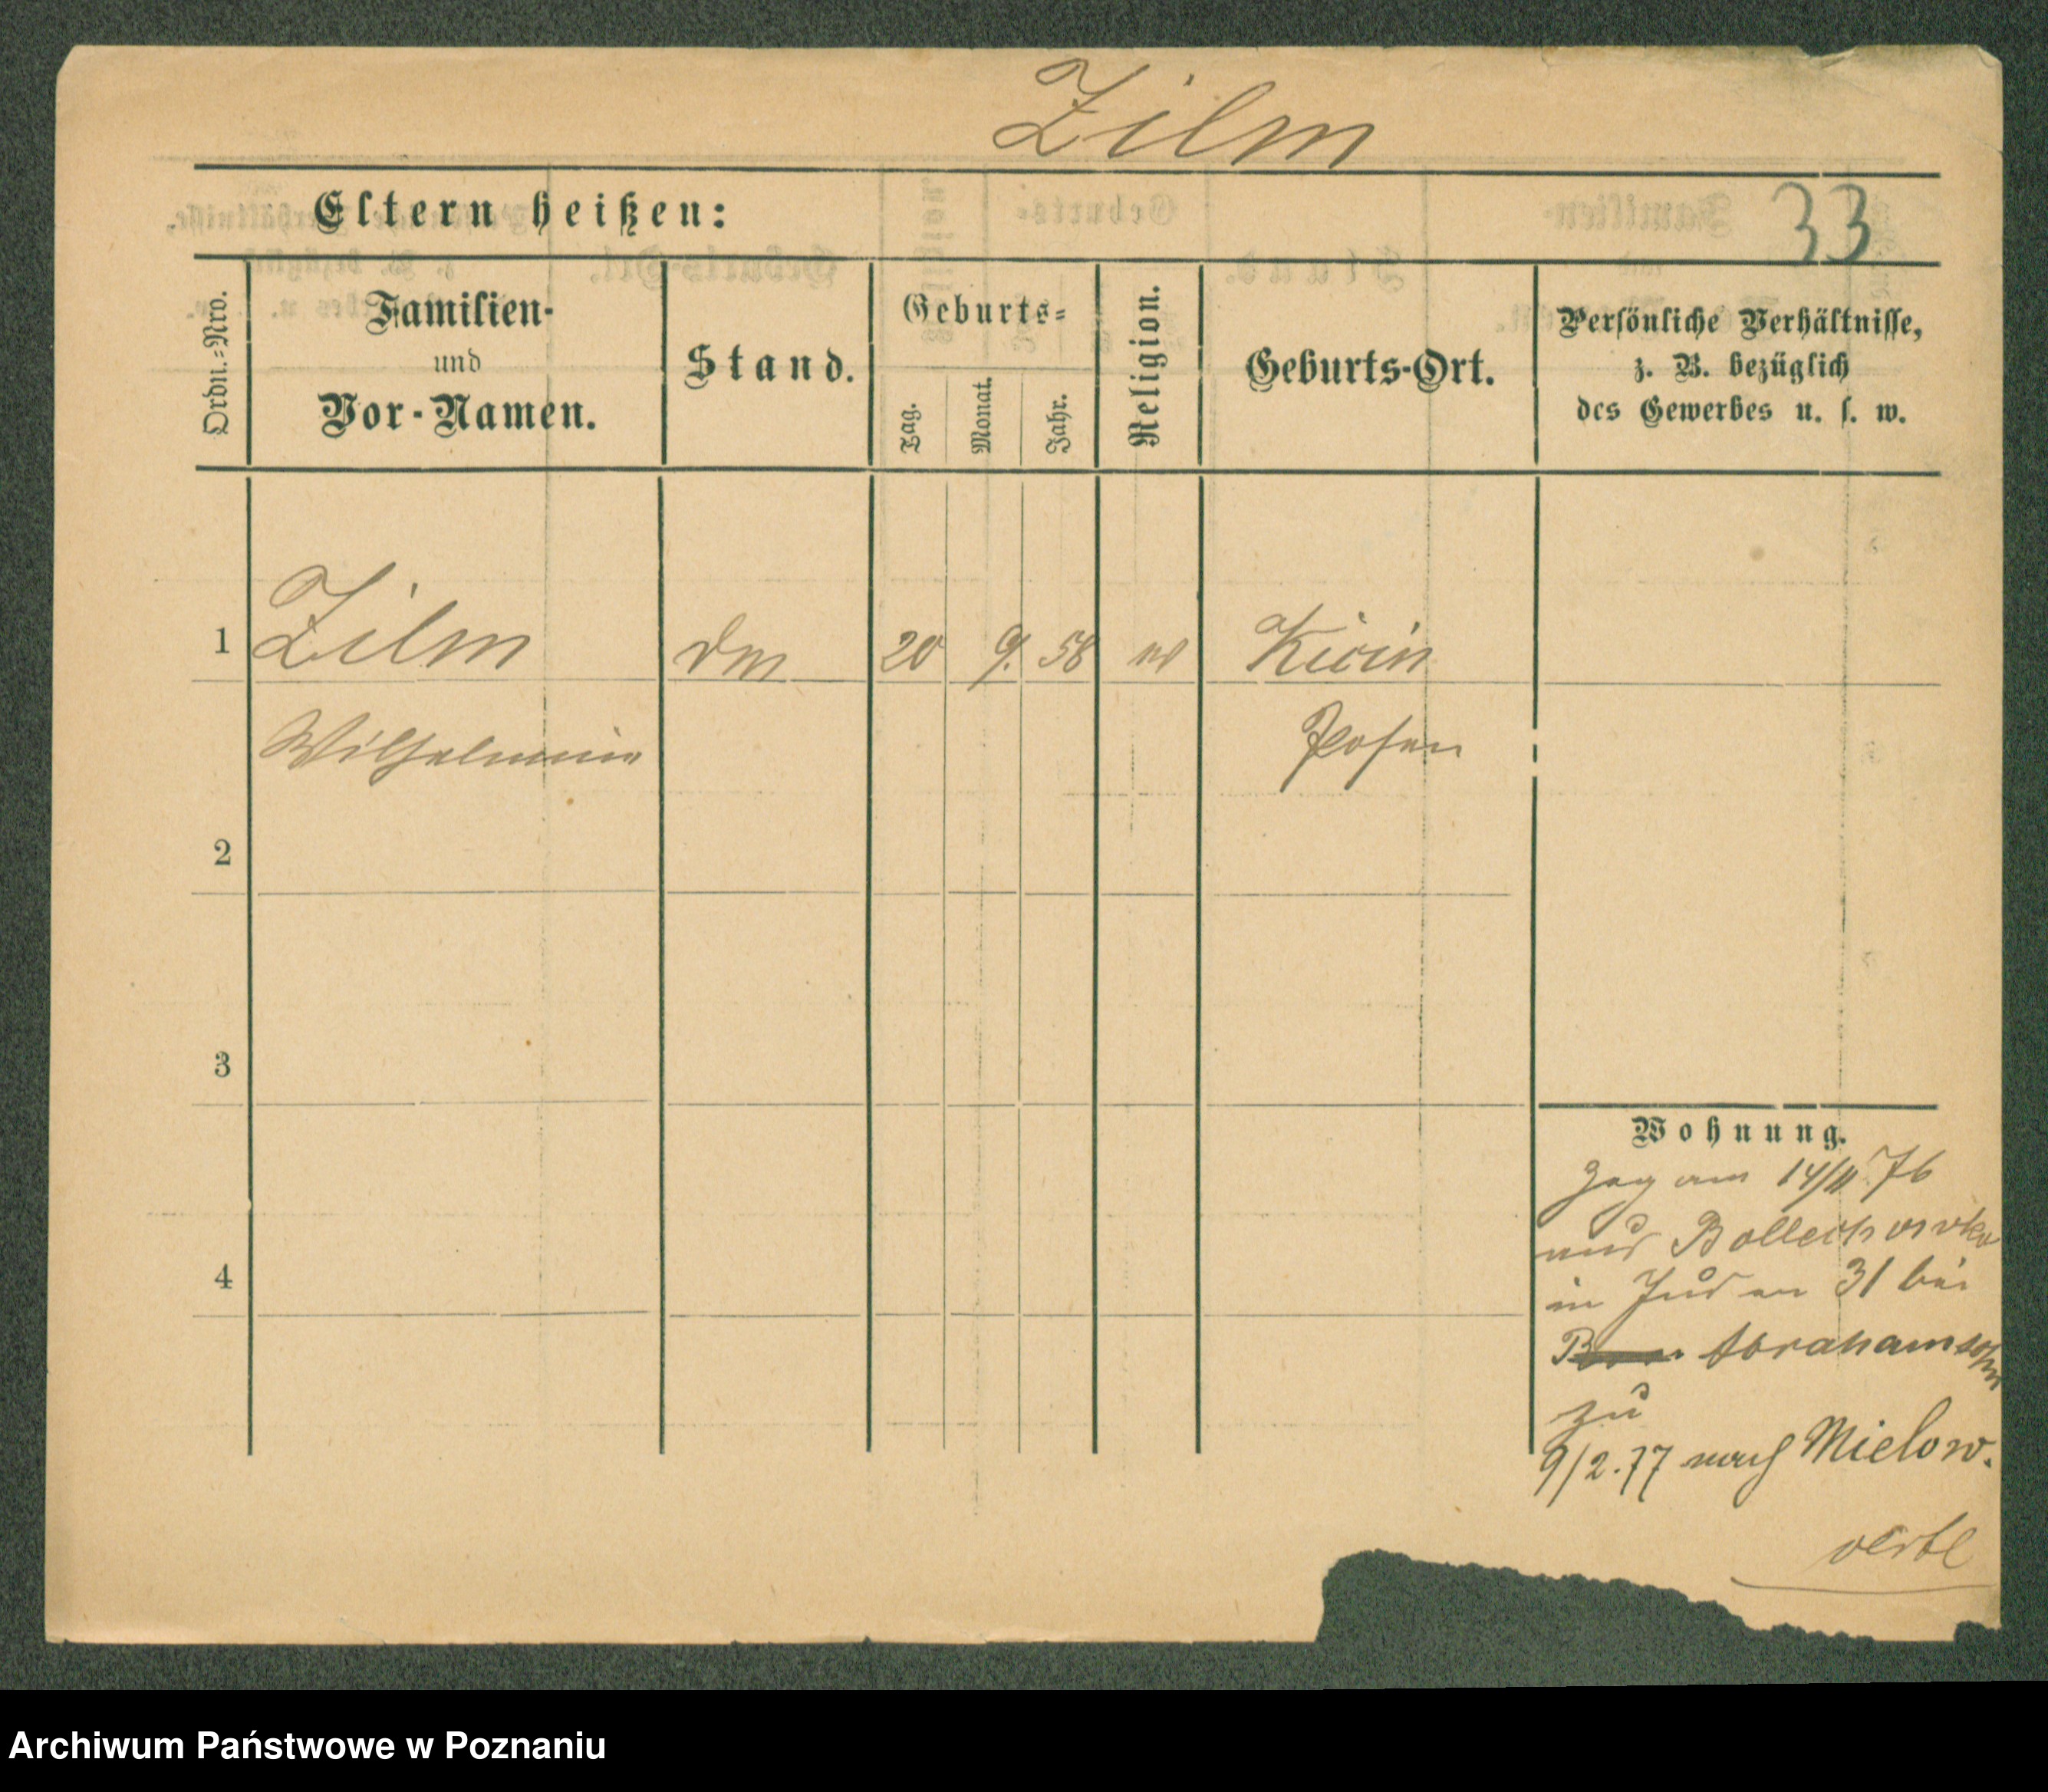 Zilm
33
Eltern heißen:
Ordn.-Nro.
Familien-
und
Vor-Namen.
Stand.
Geburts-
Tag.
Monat.
Jahr.
Religion.
Geburts-Ort.
Persönliche Verhältnisse,
z. B. bezüglich
des Gewerbes u. s. w.
1 Zilm 20 9. 58 Kicin
Wilhelmine Posen
2
3
4
Wohnung.
Zog am 14/11 76
aus
in Juden 31 bei
Abrahamsohn
zu
9/2.77 nach Mielow.
Archiwum Państwowe w Poznaniu